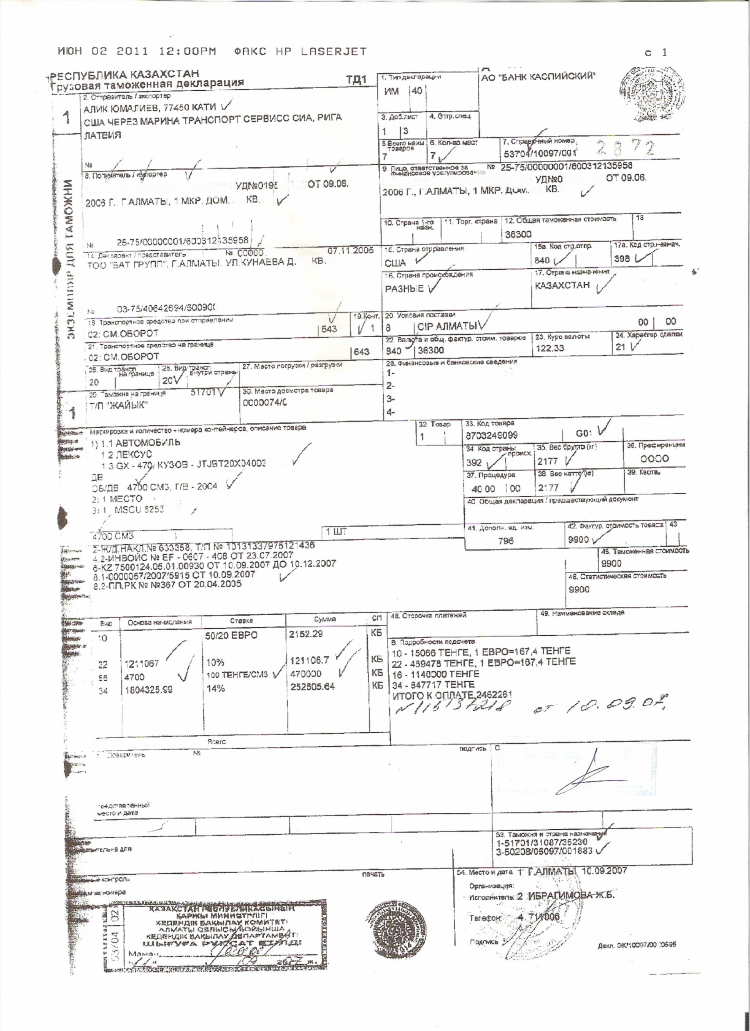 ИЮН 02 2011 12:00PM ФАКС HP LASERJET с 1
РЕСПУБЛИКА КАЗАХСТАН
Грузовая таможенная декларация ТД1
1. Тип декларации
ИМ 40
АО "БАНК КАСПИЙСКИЙ"
1
2. Отправитель / экспортер
АЛИК ЮМАЛИЕВ, 77450 КАТИ
США ЧЕРЕЗ МАРИНА ТРАНСПОРТ СЕРВИСС СИА, РИГА
ЛАТВИЯ
№
3. Доб.лист 4. Отгр.спец.
1 3
5. Всего наим. товаров 6. Кол-во мест 7. Справочный номер
7 7 53704/10097/001 2872
8. Получатель / импортер
УД№019 ОТ 09.06.
2006 Г., Г.АЛМАТЫ, 1 МКР. ДОМ. КВ.
№ 25-75/00000001/600312135958
9. Лицо, ответственное за финансовое урегулирование № 25-75/00000001/600312135958
УД№0 ОТ 09.06.
2006 Г., Г.АЛМАТЫ, 1 МКР. ДОМ. КВ.
10. Страна 1-го назн. 11. Торг. страна 12. Общая таможенная стоимость 13
36300
14. Декларант / представитель № 00000 07.11.2005
ТОО "БАТ ГРУПП", Г.АЛМАТЫ, УЛ.КУНАЕВА Д. КВ.
03-75/40642694/60090
15. Страна отправления 15а. Код стр.отпр. 17а. Код стр.назнач.
США 840 398
16. Страна происхождения 17. Страна назначения
РАЗНЫЕ КАЗАХСТАН
ЭКЗЕМПЛЯР ДЛЯ ТАМОЖНИ
18. Транспортное средство при отправлении 19. Конт.
02: СМ.ОБОРОТ 643 1
20. Условия поставки
8 CIP АЛМАТЫ 00 00
21. Транспортное средство на границе
02: СМ.ОБОРОТ 643
22. Валюта и общ. фактур. стоим. товаров 23. Курс валюты 24. Характер сделки
840 36300 122.33 21
25. Вид трансп. на границе 26. Вид трансп. внутри страны 27. Место погрузки / разгрузки
20 20
28. Финансовые и банковские сведения
1-
2-
3-
4-
1
29. Таможня на границе 51701
Т/П "ЖАЙЫК"
30. Место досмотра товара
0000074/0
Маркировка и количество - номера контейнеров, описание товара
1) 1.1 АВТОМОБИЛЬ
1.2 ЛЕКСУС
1.3 GX - 470, КУЗОВ - JTJBT20X04003
ДВ
ОБ/ДВ 4700 СМ3, Г/В - 2004
2: 1 МЕСТО
3: 1, MSCU 8253
4700 СМ3 1 ШТ
32. Товар 33. Код товара
1 8703249099 G01
34. Код страны происх. 35. Вес брутто (кг) 36. Преференции
392 2177 ОООО
37. Процедура 38. Вес нетто (кг) 39. Квота
40 00 00 2177
40. Общая декларация / предшествующий документ
41. Дополн. ед. изм. 42. Фактур. стоимость товара 43
796 9900
2-Ж/Д.НАКЛ.№ 633358, Т/П № 10131337975121436
4.2-ИНВОЙС № EF - 0607 - 408 ОТ 23.07.2007
6-KZ.7500124.05.01.00930 ОТ 10.09.2007 ДО 10.12.2007
8.1-0000057/2007/5915 ОТ 10.09.2007
8.2-ПП.РК № №367 ОТ 20.04.2005
45. Таможенная стоимость
9900
46. Статистическая стоимость
9900
Вид Основа начисления Ставка Сумма СП
10 50/20 ЕВРО 2152.29 КБ
22 1211067 10% 121106.7 КБ
55 4700 100 ТЕНГЕ/СМ3 470000 КБ
34 1804325.99 14% 252605.64 КБ
Всего
48. Отсрочка платежей 49. Наименование склада
В. Подробности подсчета
10 - 15066 ТЕНГЕ, 1 ЕВРО=167,4 ТЕНГЕ
22 - 459478 ТЕНГЕ, 1 ЕВРО=167,4 ТЕНГЕ
16 - 1140000 ТЕНГЕ
34 - 847717 ТЕНГЕ
ИТОГО К ОПЛАТЕ 2462261
от 10.09.07.
Доверитель № подпись С
представленный
место и дата
53. Таможня и страна назначения
1-51701/31087/35230
3-50208/06097/001883
контроль печать
54. Место и дата 1 Г.АЛМАТЫ 10.09.2007
Организация:
Исполнитель: 2 ИБРАГИМОВА Ж.Б.
Телефон:
Подпись
53704 02
ҚАЗАҚСТАН РЕСПУБЛИКАСЫНЫҢ
ҚАРЖЫ МИНИСТРЛІГІ
КЕДЕНДІК БАҚЫЛАУ КОМИТЕТІ
АЛМАТЫ ОБЛЫСЫ БОЙЫНША
КЕДЕНДІК БАҚЫЛАУ ДЕПАРТАМЕНТІ
ШЫҒУҒА РҰҚСАТ ЕТІЛДІ